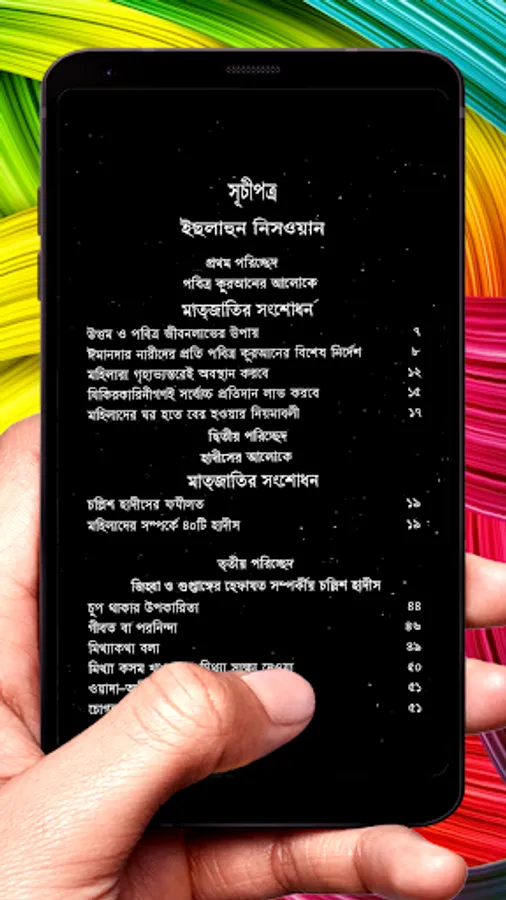 সূচীপত্র
ইছলাহুন নিসওয়ান
প্রথম পরিচ্ছেদ
পবিত্র কুরআনের আলোকে
মাতৃজাতির সংশোধন
উত্তম ও পবিত্র জীবনলাভের উপায় ৭
ঈমানদার নারীদের প্রতি পবিত্র কুরআনের বিশেষ নির্দেশ ৮
মহিলারা গৃহাভ্যন্তরেই অবস্থান করবে ১২
যিকিরকারিনীগণই সর্বোচ্চ প্রতিদান লাভ করবে ১৫
মহিলাদের ঘর হতে বের হওয়ার নিয়মাবলী ১৭
দ্বিতীয় পরিচ্ছেদ
হাদীসের আলোকে
মাতৃজাতির সংশোধন
চল্লিশ হাদীসের ফযীলত ১৯
মহিলাদের সম্পর্কে ৪০টি হাদীস ১৯
তৃতীয় পরিচ্ছেদ
জিহ্বা ও গুপ্তাঙ্গের হেফাযত সম্পর্কীয় চল্লিশ হাদীস
চুপ থাকার উপকারিতা ৪৪
গীবত বা পরনিন্দা ৪৬
মিথ্যাকথা বলা ৪৯
মিথ্যা কসম মিথ্যা সাক্ষ্য দেওয়া ৫০
ওয়াদা- ৫১
৫১